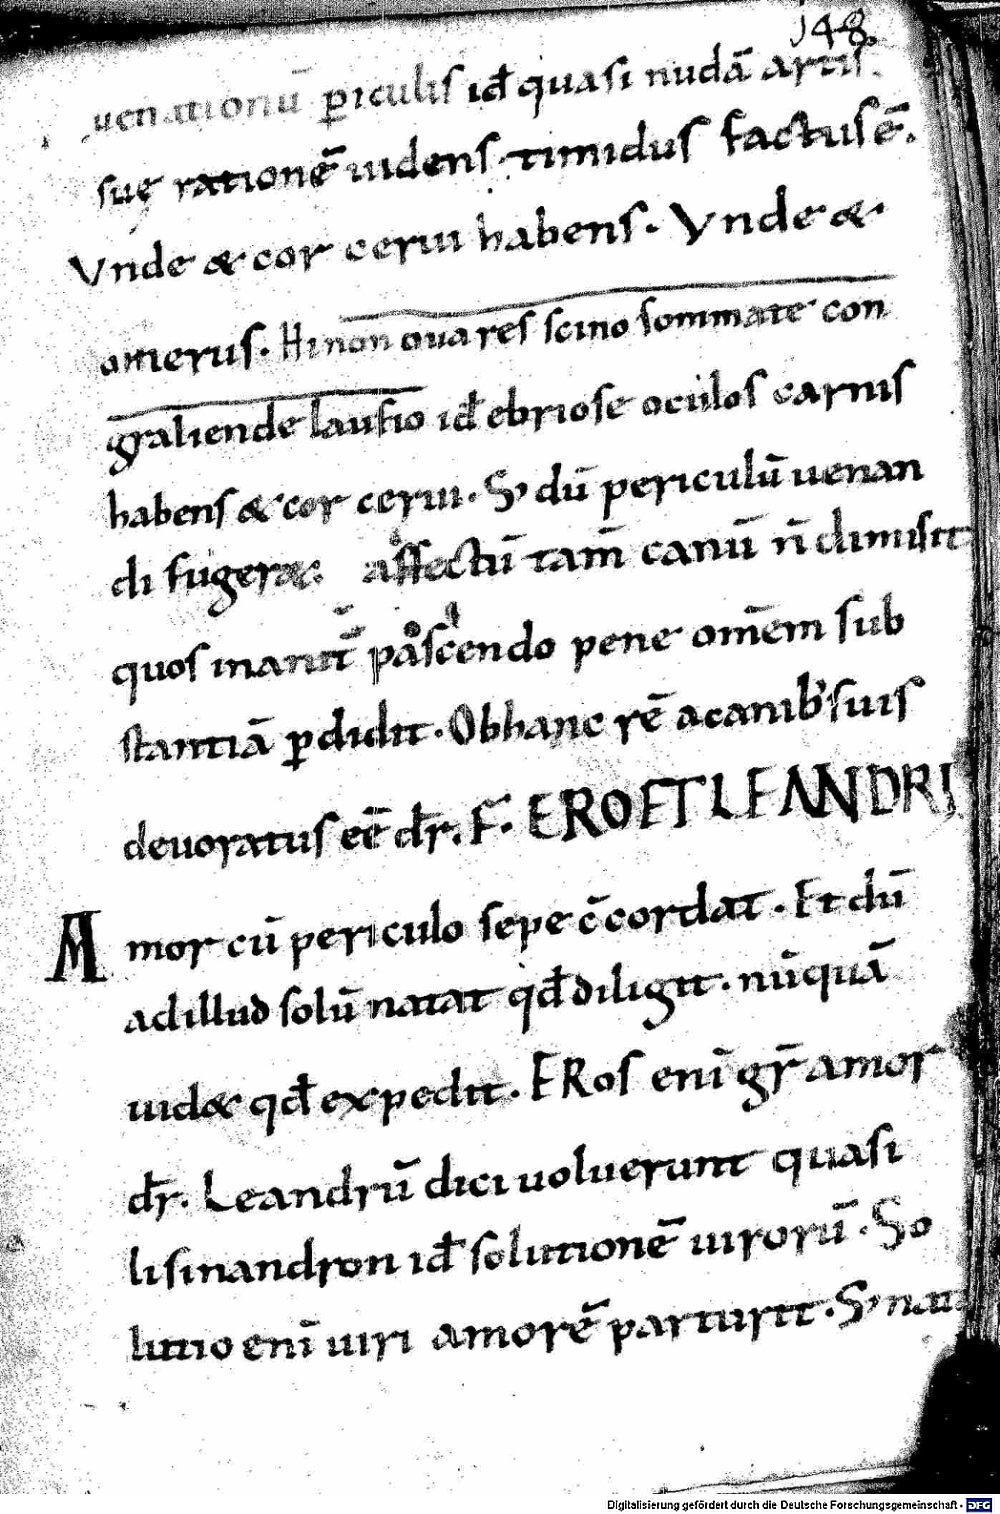 148.
uenationū ꝑiculis id̄ quasi nudā artis
suę rationē uidens · timidus factus ē.
Vnde & cor cerui habens. Vnde &
omerus. Hinon oua res scino sommate con
graliende lausio id̄ ebriose oculos carnis
habens & cor cerui. S; dū periculū uenan
di fugeræ; affectū tam̄ canū n̄ dimisit
quos inanit̄ pascendo pene om̄em sub
stantiā ꝑdidit. Ob hanc rē a canib; suis
deuoratus eē dr̄. F̄. ERO ET LEANDRI
Amor cū periculo sepe c̄cordat. Et dū
ad illud solū natat qd̄ diligit. nū quā
uidæ qd̄ expedit. EROS enī gr̄ amor
dr̄. Leandrū dici uoluerunt quasi
lisinandron id̄ solutionē uirorū. So
lutio enī uiri amorē parturit. S;